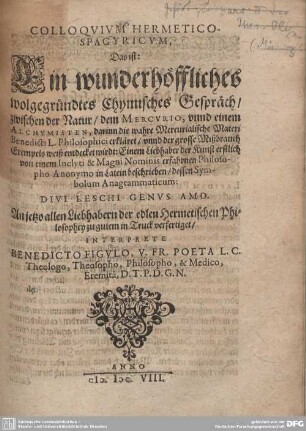 COLLOQVIVM HERMETICO-
SPAGYRICVM,
Das ist:
Ein wunderhöffliches
wolgegründtes Chymisches Gespräch/
zwischen der Natur/ dem MERCVRIO, vnnd einem
ALCHYMISTEN, darinn die wahre Mercurialische Materi
Benedicti L. Philosophici erkläret/ vnnd der grosse Mißbrauch
Exempels weiß entdecket würdt: Einem Liebhaber der Kunst erstlich
von einem Inclyti & Magni Nominis erfahrnen Philoso-
pho Anonymo in Latein beschrieben/ dessen Sym-
bolum Anagrammaticum:
DIVI LESCHI GENVS AMO.
An jetzo allen Liebhabern der edlen Hermetischen Phi-
losophey zu gutem in Truck verfertiget/
INTERPRETE
BENEDICTO FIGVLO, V. FR. POETA L. C.
Theologo, Theosopho, Philosopho, & Medico,
Eremita, D. T. P. D. G. N.
ANNO
cIɔ. Iɔc. VIII.
DFG